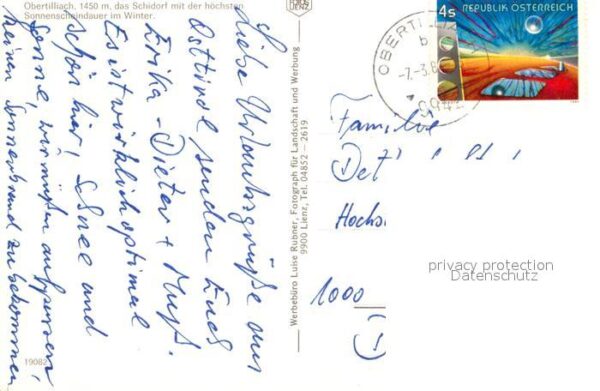 Obertilliach, 1450 m, das Schidorf mit der höchsten
Sonnenscheindauer im Winter.
Liebe Urlaubsgrüße aus
Osttirol senden Euch
Erika - Dieter +
Es ist wirklich optimal
schön hier, Schnee und
Sonne, wir müssen aufpassen
keinen Sonnenbrand zu bekommen
19082
Werbebüro Luise Rubner, Fotograph für Landschaft und Werbung
9900 Lienz, Tel. 04852 – 2619
LIENZ
4s
REPUBLIK ÖSTERREICH
OBERTI
b
-7.-3.8
9942
Familie
Det
Hochs
1000
privacy protection
Datenschutz